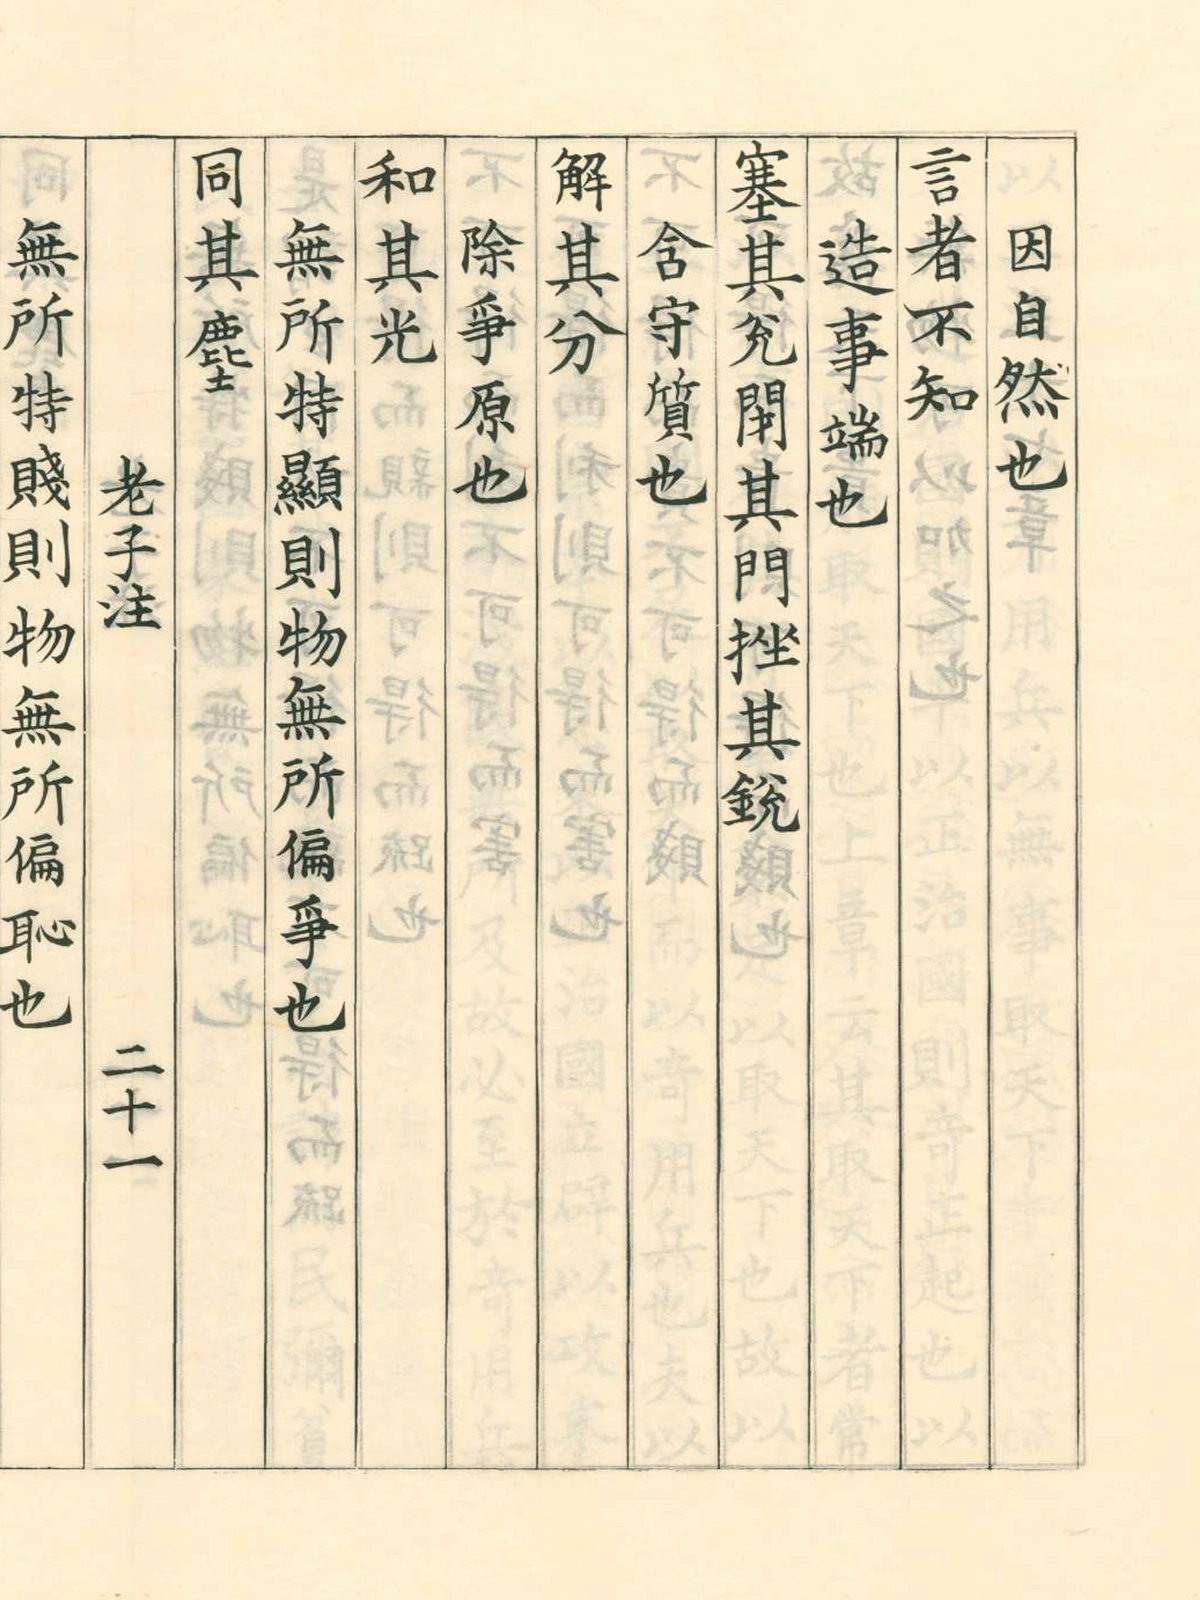 因自然也
言者不知
造事端也
塞其兌閇其門挫其銳
含守質也
解其分
除爭原也
和其光
無所特顯則物無所偏爭也
同其塵
老子注 二十一
無所特賤則物無所偏恥也